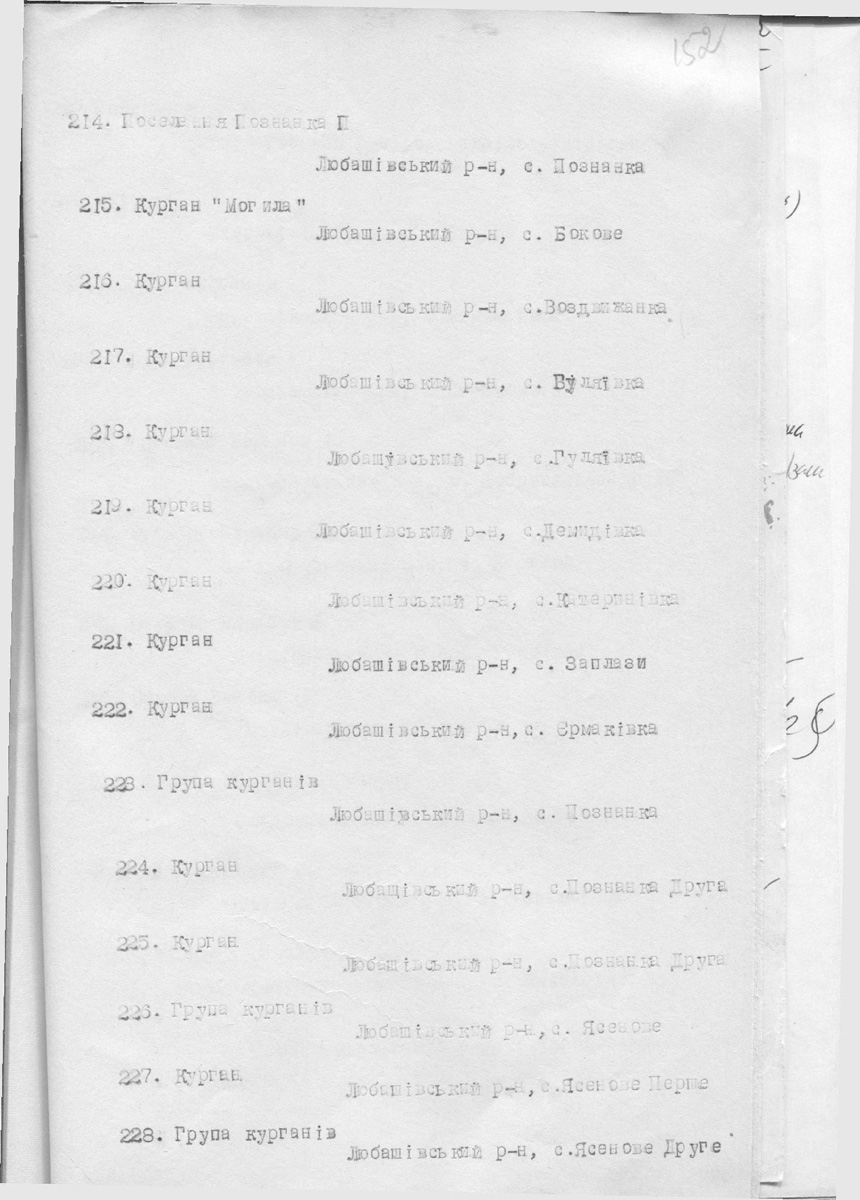 152
214. Поселення Познанка П
Любашівський р-н, с. Познанка
215. Курган "Могила"
Любашівський р-н, с. Бокове
216. Курган
Любашівський р-н, с.Воздвижанка
217. Курган
Любашівський р-н, с. Вуляївка
218. Курган
Любашівський р-н, с.Гуляївка
219. Курган
Любашівський р-н, с.Демидівка
220. Курган
Любашівський р-н, с.Катеринівка
221. Курган
Любашівський р-н, с. Заплази
222. Курган
Любашівський р-н,с. Єрмаківка
223. Група курганів
Любашівський р-н, с. Познанка
224. Курган
Любащівський р-н, с.Познанка Друга
225. Курган
Любашівський р-н, с.Познанка Друга
226. Група курганів
Любашівський р-н,с. Ясенове
227. Курган
Любашівський р-н,с.Ясенове Перше
228. Група курганів
Любашівський р-н, с.Ясенове Друге